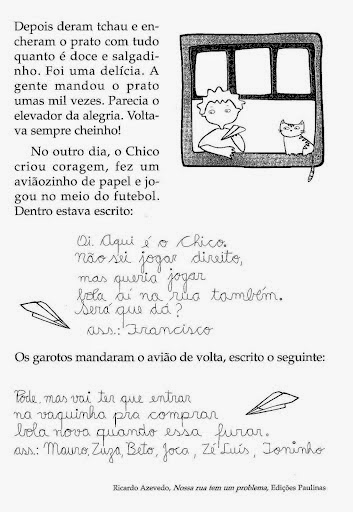 Depois deram tchau e en-
cheram o prato com tudo
quanto é doce e salgadi-
nho. Foi uma delícia. A
gente mandou o prato
umas mil vezes. Parecia o
elevador da alegria. Volta-
va sempre cheinho!
No outro dia, o Chico
criou coragem, fez um
aviãozinho de papel e jo-
gou no meio do futebol.
Dentro estava escrito:
Oi. Aqui é o Chico.
Não sei jogar direito,
mas queria jogar
bola aí na rua também.
Será que dá?
ass.: Francisco
Os garotos mandaram o avião de volta, escrito o seguinte:
Pode, mas vai ter que entrar
na vaquinha pra comprar
bola nova quando essa furar.
ass.: Mauro, Zuza, Beto, Joca, Zé Luís, Toninho
Ricardo Azevedo, Nossa rua tem um problema, Edições Paulinas